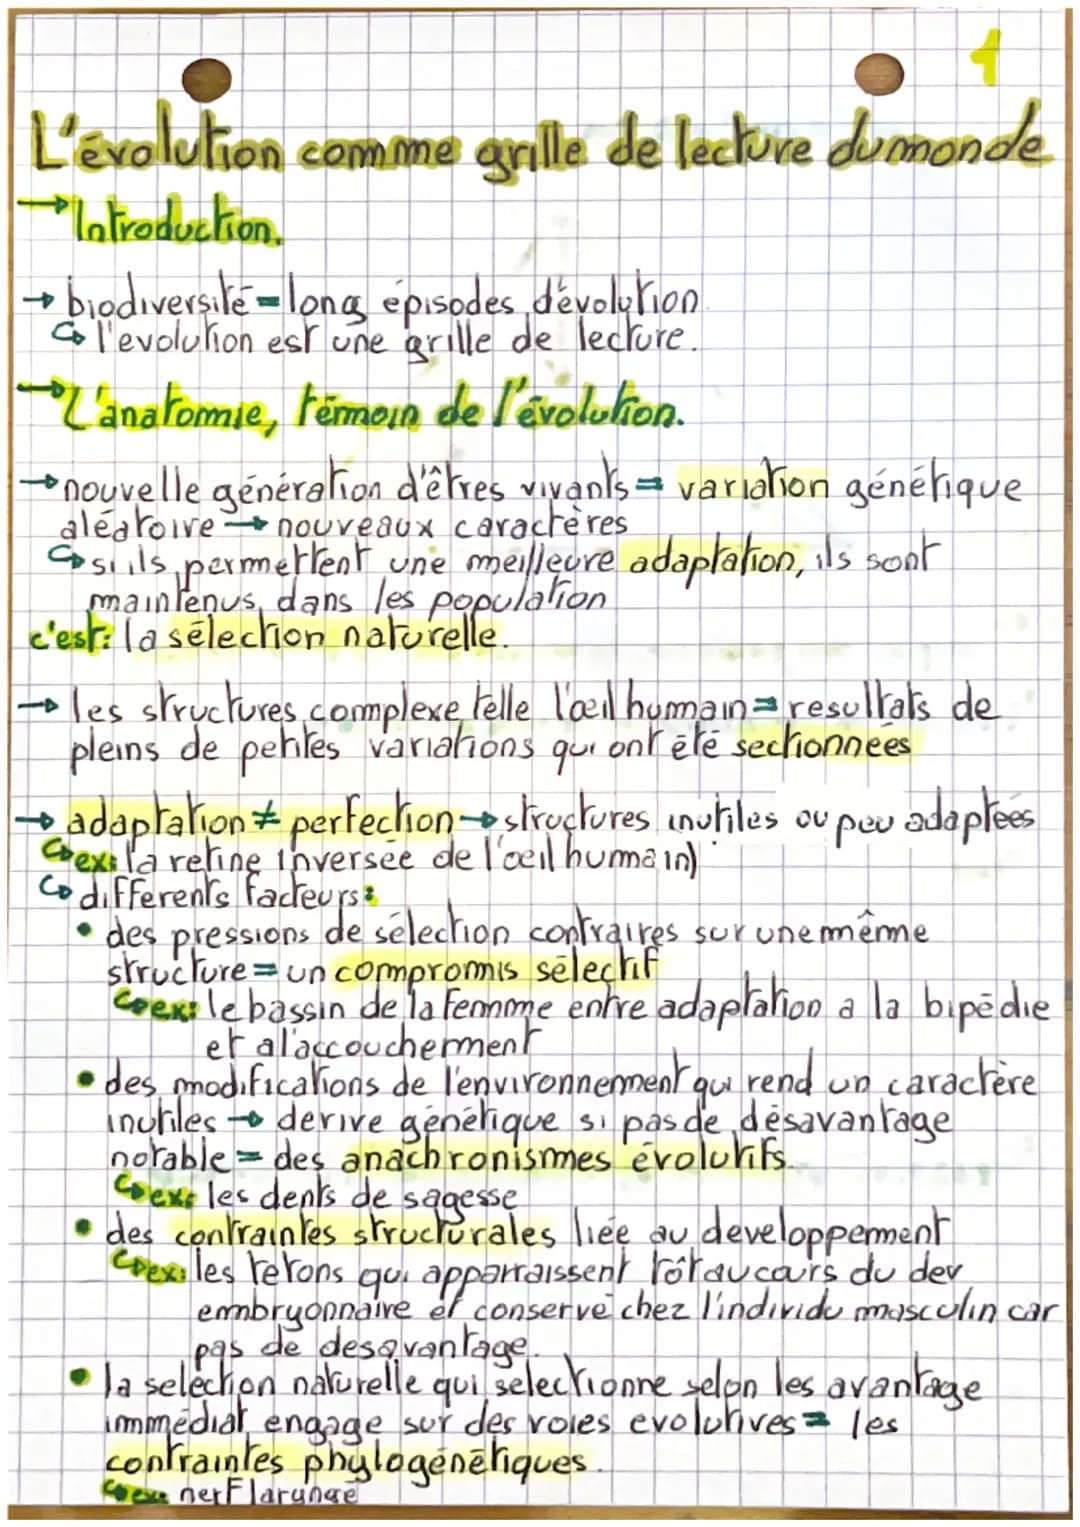 1
L'évolution comme grille de lecture du monde
→ Introduction.
→ biodiversité = long épisodes d'évolution
↳ l'evolution est une grille de lecture.
→ L'anatomie, témoin de l'évolution.
→ nouvelle génération d'êtres vivants = variation génétique
aléatoire → nouveaux caractères
↳ si ils permettent une meilleure adaptation, ils sont
maintenus dans les population
c'est: la sélection naturelle.
→ les structures complexe telle l'œil humain = resultats de
pleins de petites variations qui ont été sectionnées
→ adaptation ≠ perfection → structures inutiles ou peu adaptées
↳ ex: la retine inversée de l'œil humain)
↳ différents facteurs:
• des pressions de sélection contraires sur une même
structure = un compromis sélectif
↳ ex: le bassin de la femme entre adaptation a la bipédie
et a l'accouchement
• des modifications de l'environnement qui rend un caractère
inutiles → derive génétique si pas de désavantage
notable = des anachronismes évolutifs.
↳ ex: les dents de sagesse
• des contraintes structurales liée au developpement
↳ ex: les tetons qui apparraissent tôt au cours du dev
embryonnaire et conservé chez l'individu masculin car
pas de desavantage.
• la sélection naturelle qui selectionne selon les avantage
immédiat engage sur des voies evolutives = les
contraintes phylogénétiques.
↳ ex: nerf larungé